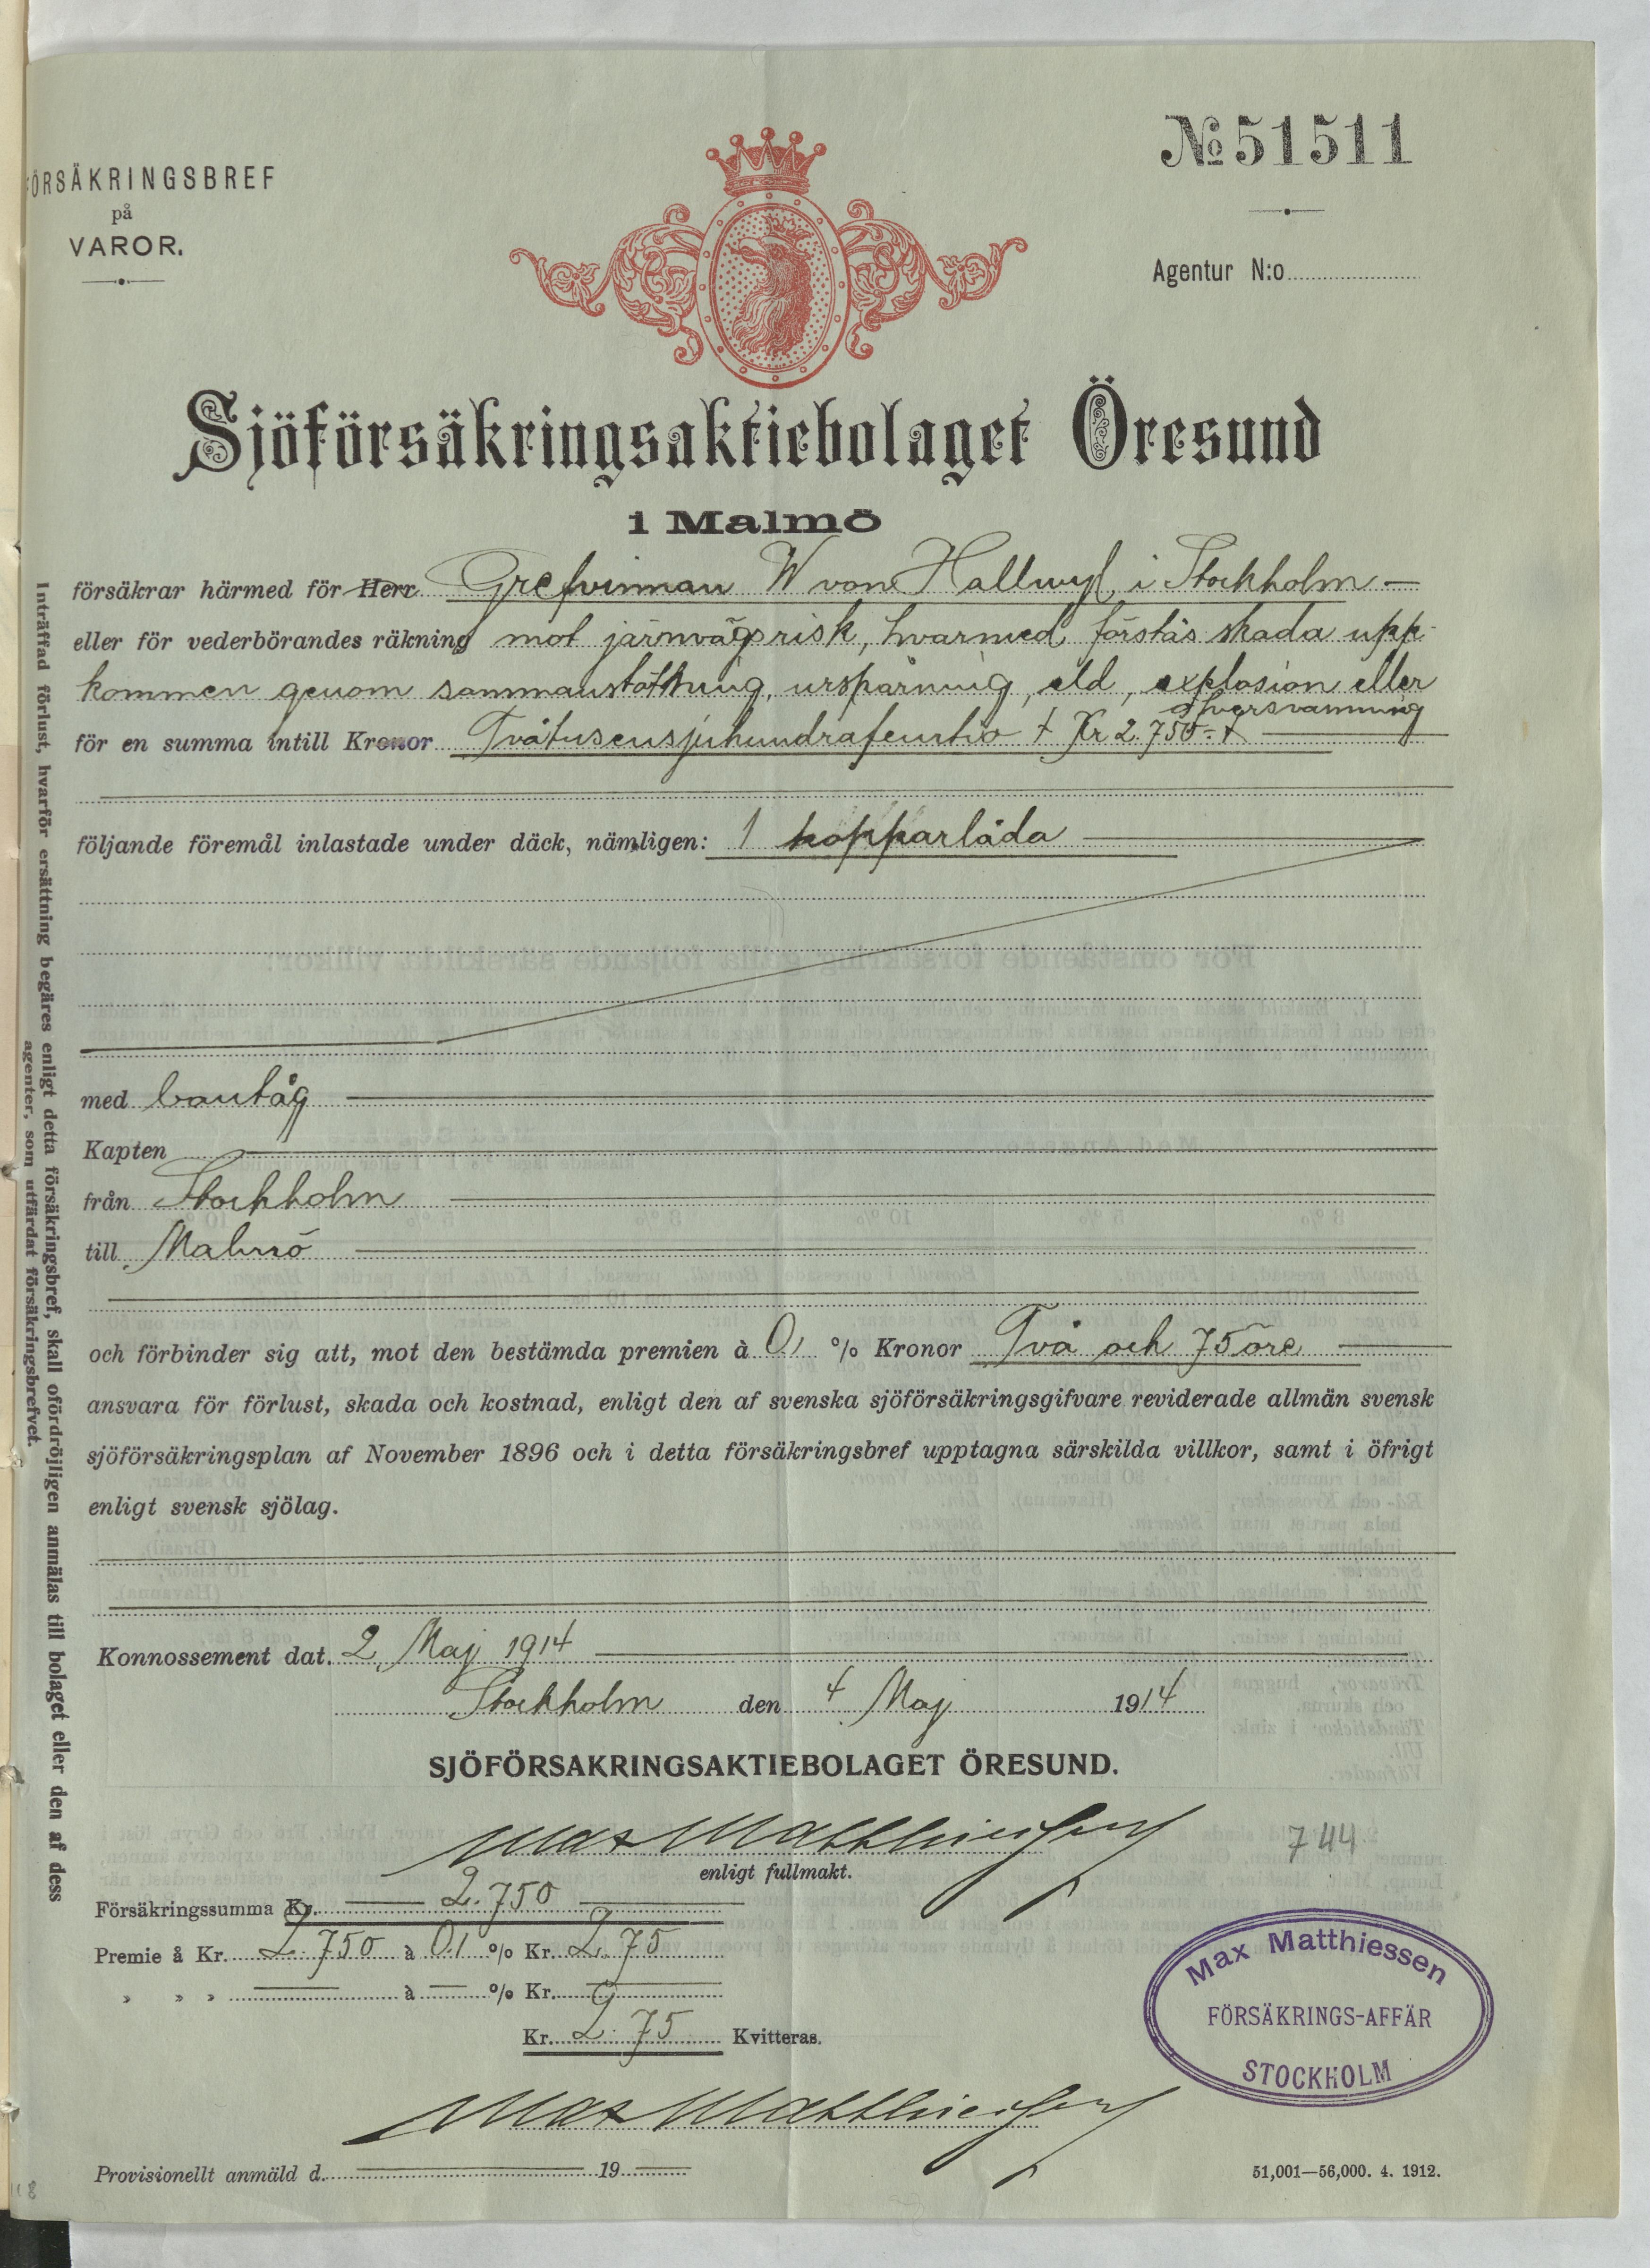 FÖRSÄKRINGSBREF
på
VAROR.
№ 51511
Agentur N:o
Sjöförsäkringsaktiebolaget Öresund
i Malmö
försäkrar härmed för Herr Grefvinnan W von Hallwyl, i Stockholm
eller för vederbörandes räkning mot järnvägsrisk, hvarmed förstås skada upp-
kommen genom sammanstötning, urspårning, eld, explosion eller
öfversvämning
för en summa intill Kronor Tvåtusensjuhundrafemtio + Kr 2.750:- +
följande föremål inlastade under däck, nämligen: 1 kopparlåda
med bantåg
Kapten
från Stockholm
till Malmö
och förbinder sig att, mot den bestämda premien à 0,1 % Kronor Två och 75 öre
ansvara för förlust, skada och kostnad, enligt den af svenska sjöförsäkringsgifvare reviderade allmän svensk
sjöförsäkringsplan af November 1896 och i detta försäkringsbref upptagna särskilda villkor, samt i öfrigt
enligt svensk sjölag.
Konnossement dat. 2 Maj 1914
Stockholm den 4 Maj 1914
SJÖFÖRSAKRINGSAKTIEBOLAGET ÖRESUND.
Max Matthiessen
enligt fullmakt.
744
Försäkringssumma Kr. 2.750
Premie å Kr. 2.750 à 0.1 % Kr. 2.75
» » » à % Kr.
Kr. 2.75 Kvitteras.
Max Matthiessen
Max Matthiessen
FÖRSÄKRINGS-AFFÄR
STOCKHOLM
Provisionellt anmäld d. 19
51,001—56,000. 4. 1912.
Inträffad förlust, hvarför ersättning begäres enligt detta försäkringsbref, skall ofördröjligen anmälas till bolaget eller den af dess
agenter, som utfärdat försäkringsbrefvet.